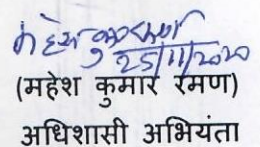 25/11/2020
(महेश कुमार रमण)
अधिशासी अभियंता